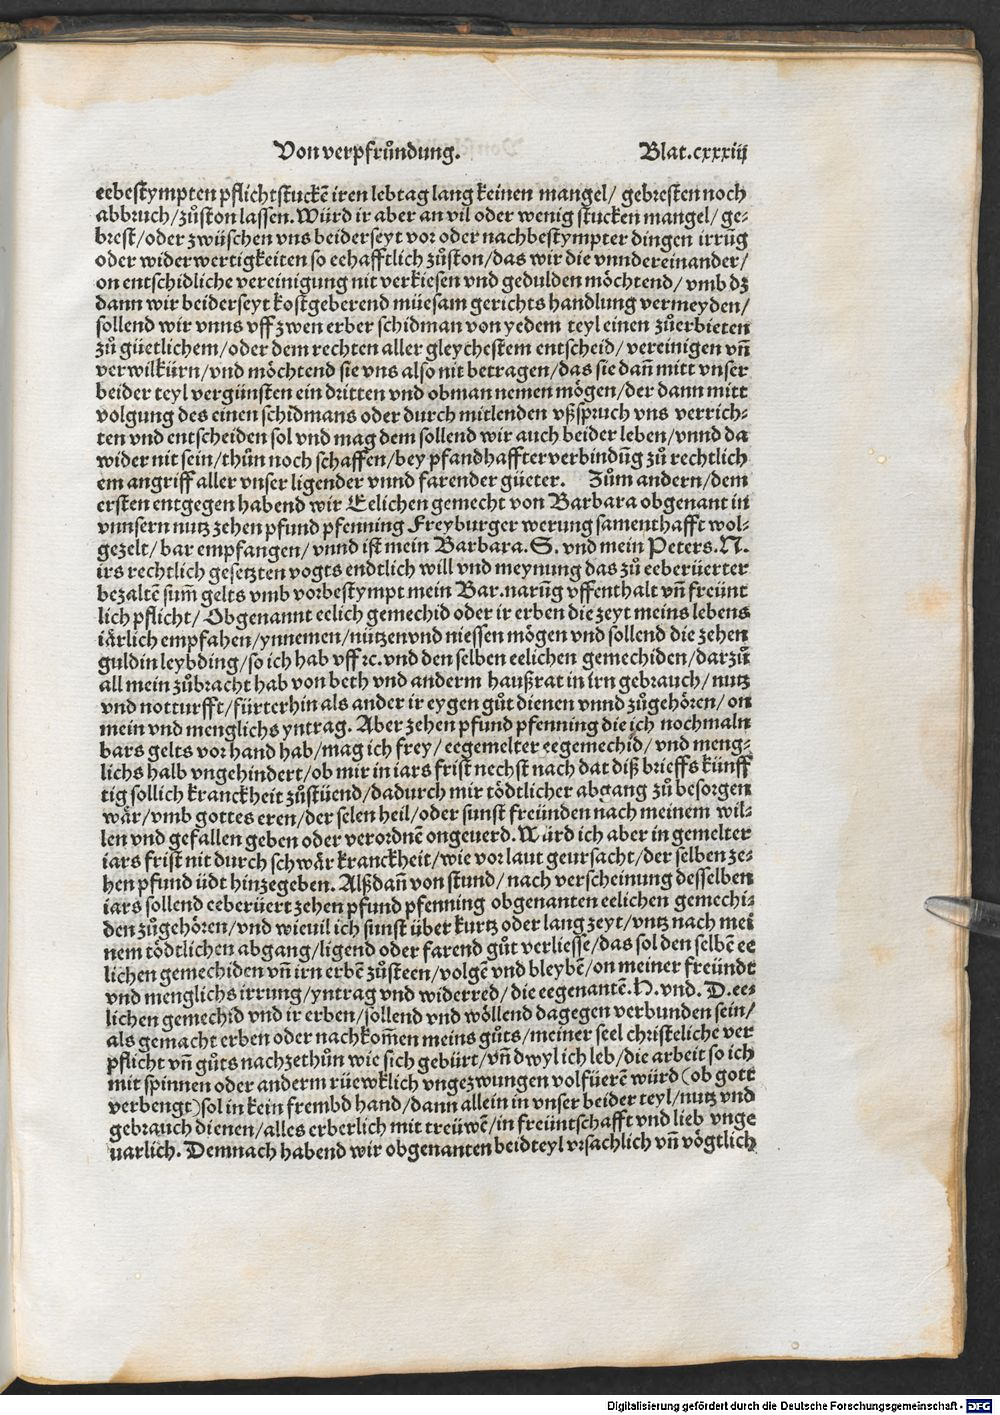 Von verpfruͤndung.
Blat. cxxxiij
eebestympten pflichtstuckē iren lebtag lang keinen mangel/ gebresten noch
abbruch/zuͦston lassen. Wuͤrd ir aber an vil oder wenig stucken mangel/ ge⸗
brest/oder zwuͤschen vns beiderseyt vor oder nachbestympter dingen irrūg
oder widerwertigkeiten so eehafftlich zuͦston/das wir die vnndereinander/
on entschidliche vereinigung nit verkiesen vnd gedulden moͤchtend/ vmb dz
dann wir beiderseyt kostgeberend muͤesam gerichts handlung vermeyden/
sollend wir vnns vff zwen erber schidman von yedem teyl einen zuͦerbieten
zuͦ guͤetlichem/oder dem rechten aller gleychestem entscheid/ vereinigen vn̄
verwilkuͤrn/vnd moͤchtend sie vns also nit betragen/das sie dan̄ mitt vnser
beider teyl verguͤnsten ein dritten vnd obman nemen moͤgen/der dann mitt
volgung des einen schidmans oder durch mitlenden vßspruch vns verrich⸗
ten vnd entscheiden sol vnd mag dem sollend wir auch beider leben/vnnd da
wider nit sein/thuͦn noch schaffen/bey pfandhaffter verbindūg zuͦ rechtlich
em angriff aller vnser ligender vnnd farender guͤeter. Zuͦm andern/dem
ersten entgegen habend wir Eelichen gemecht von Barbara obgenant in
vnnsern nutz zehen pfund pfenning Freyburger werung samenthafft wol⸗
gezelt/ bar empfangen/ vnnd ist mein Barbara. S. vnd mein Peters. N.
irs rechtlich gesetzten vogts endtlich will vnd meynung das zuͦ eeberuͤerter
bezaltē sum̄ gelts vmb vorbestympt mein Bar. narūg vffenthalt vn̄ freuͤnt
lich pflicht/ Obgenannt eelich gemechid oder ir erben die zeyt meins lebens
iaͤrlich empfahen/ynnemen/nuͤtzen vnd niessen moͤgen vnd sollend die zehen
guldin leybding/so ich hab vff ꝛc. vnd den selben eelichen gemechiden/darzuͦ
all mein zuͦbracht hab von beth vnd anderm haußrat in irn gebrauch/ nutz
vnd notturfft/fuͤrterhin als ander ir eygen guͦt dienen vnnd zuͦgehoͤren/ on
mein vnd menglichs yntrag. Aber zehen pfund pfenning die ich nochmaln
bars gelts vor hand hab/mag ich frey/ eegemelter eegemechid/ vnd meng⸗
lichs halb vngehindert/ob mir in iars frist nechst nach dat diß brieffs kuͤnff
tig sollich kranckheit zuͦstuͤend/dadurch mir toͤdtlicher abgang zuͦ besorgen
waͤr/vmb gottes eren/der selen heil/oder sunst freuͤnden nach meinem wil⸗
len vnd gefallen geben oder verordnē ongeuerd. Wuͤrd ich aber in gemelter
iars frist nit durch schwaͤr kranckheit/wie vor laut geursacht/der selben ze⸗
hen pfund uͤdt hinzegeben. Alßdan̄ von stund/ nach verscheinung desselben
iars sollend eeberuͤert zehen pfund pfenning obgenanten eelichen gemechi⸗
den zuͦgehoͤren/vnd wieuil ich sunst uͤber kurtz oder lang zeyt/vntz nach mei
nem toͤdtlichen abgang/ligend oder farend guͦt verliesse/das sol den selbē ee
lichen gemechiden vn̄ irn erbē zuͦsteen/volgē vnd bleybē/on meiner freuͤndt
vnd menglichs irrung/yntrag vnd widerred/ die eegenantē. H. vnd. D. ee⸗
lichen gemechid vnd ir erben/sollend vnd woͤllend dagegen verbunden sein/
als gemacht erben oder nachkom̄en meins guͦts/meiner seel christeliche ver
pflicht vn̄ guͦts nachzethuͦn wie sich gebuͤrt/vn̄ dwyl ich leb/die arbeit so ich
mit spinnen oder anderm ruͤewklich vngezwungen volfuͤerē wuͤrd (ob gott
verhengt) sol in kein frembd hand/dann allein in vnser beider teyl/nutz vnd
gebrauch dienen/alles erberlich mit treuͤwē/in freuͤntschafft vnd lieb vnge
uarlich. Demnach habend wir obgenanten beidteyl vrsachlich vn̄ voͤgtlich
Digitalisierung gefördert durch die Deutsche Forschungsgemeinschaft - DFG